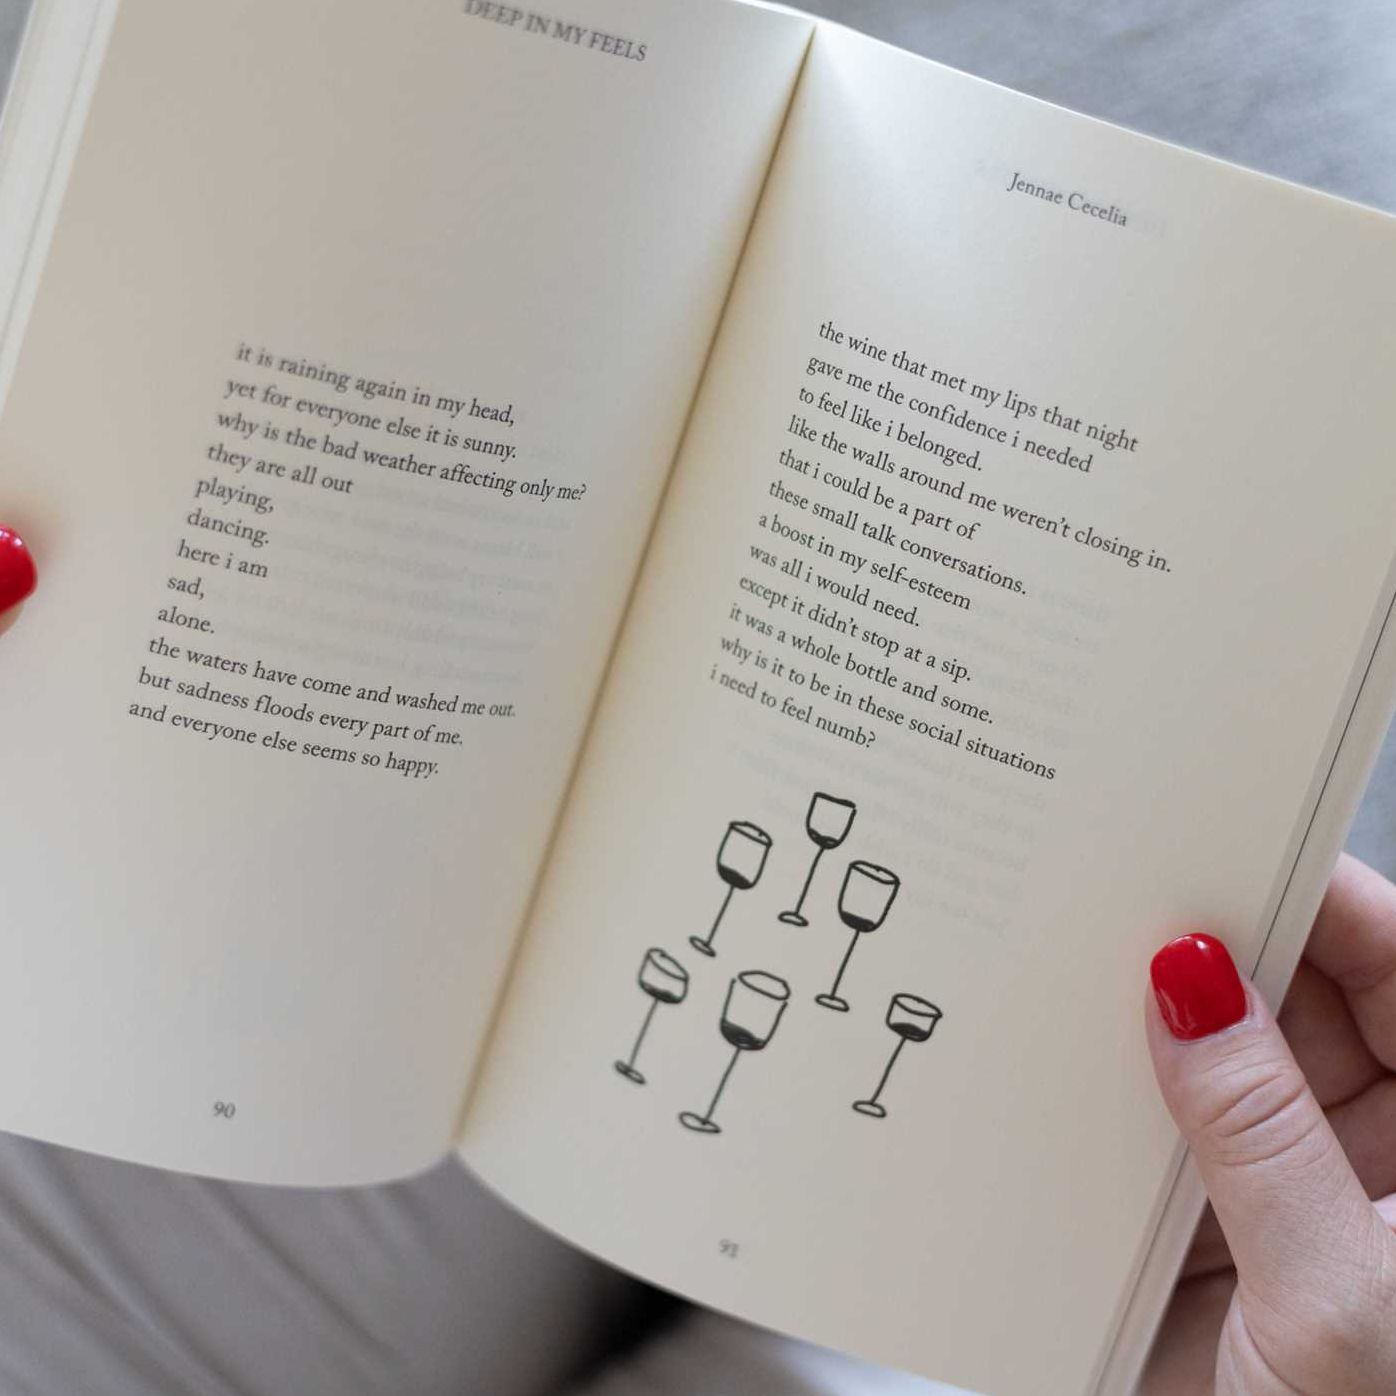 DEEP IN MY FEELS
it is raining again in my head,
yet for everyone else it is sunny.
why is the bad weather affecting only me?
they are all out
playing,
dancing.
here i am
sad,
alone.
the waters have come and washed me out.
but sadness floods every part of me.
and everyone else seems so happy.
90
Jennae Cecelia
the wine that met my lips that night
gave me the confidence i needed
to feel like i belonged.
like the walls around me weren't closing in.
that i could be a part of
these small talk conversations.
a boost in my self-esteem
was all i would need.
except it didn't stop at a sip.
it was a whole bottle and some.
why is it to be in these social situations
i need to feel numb?